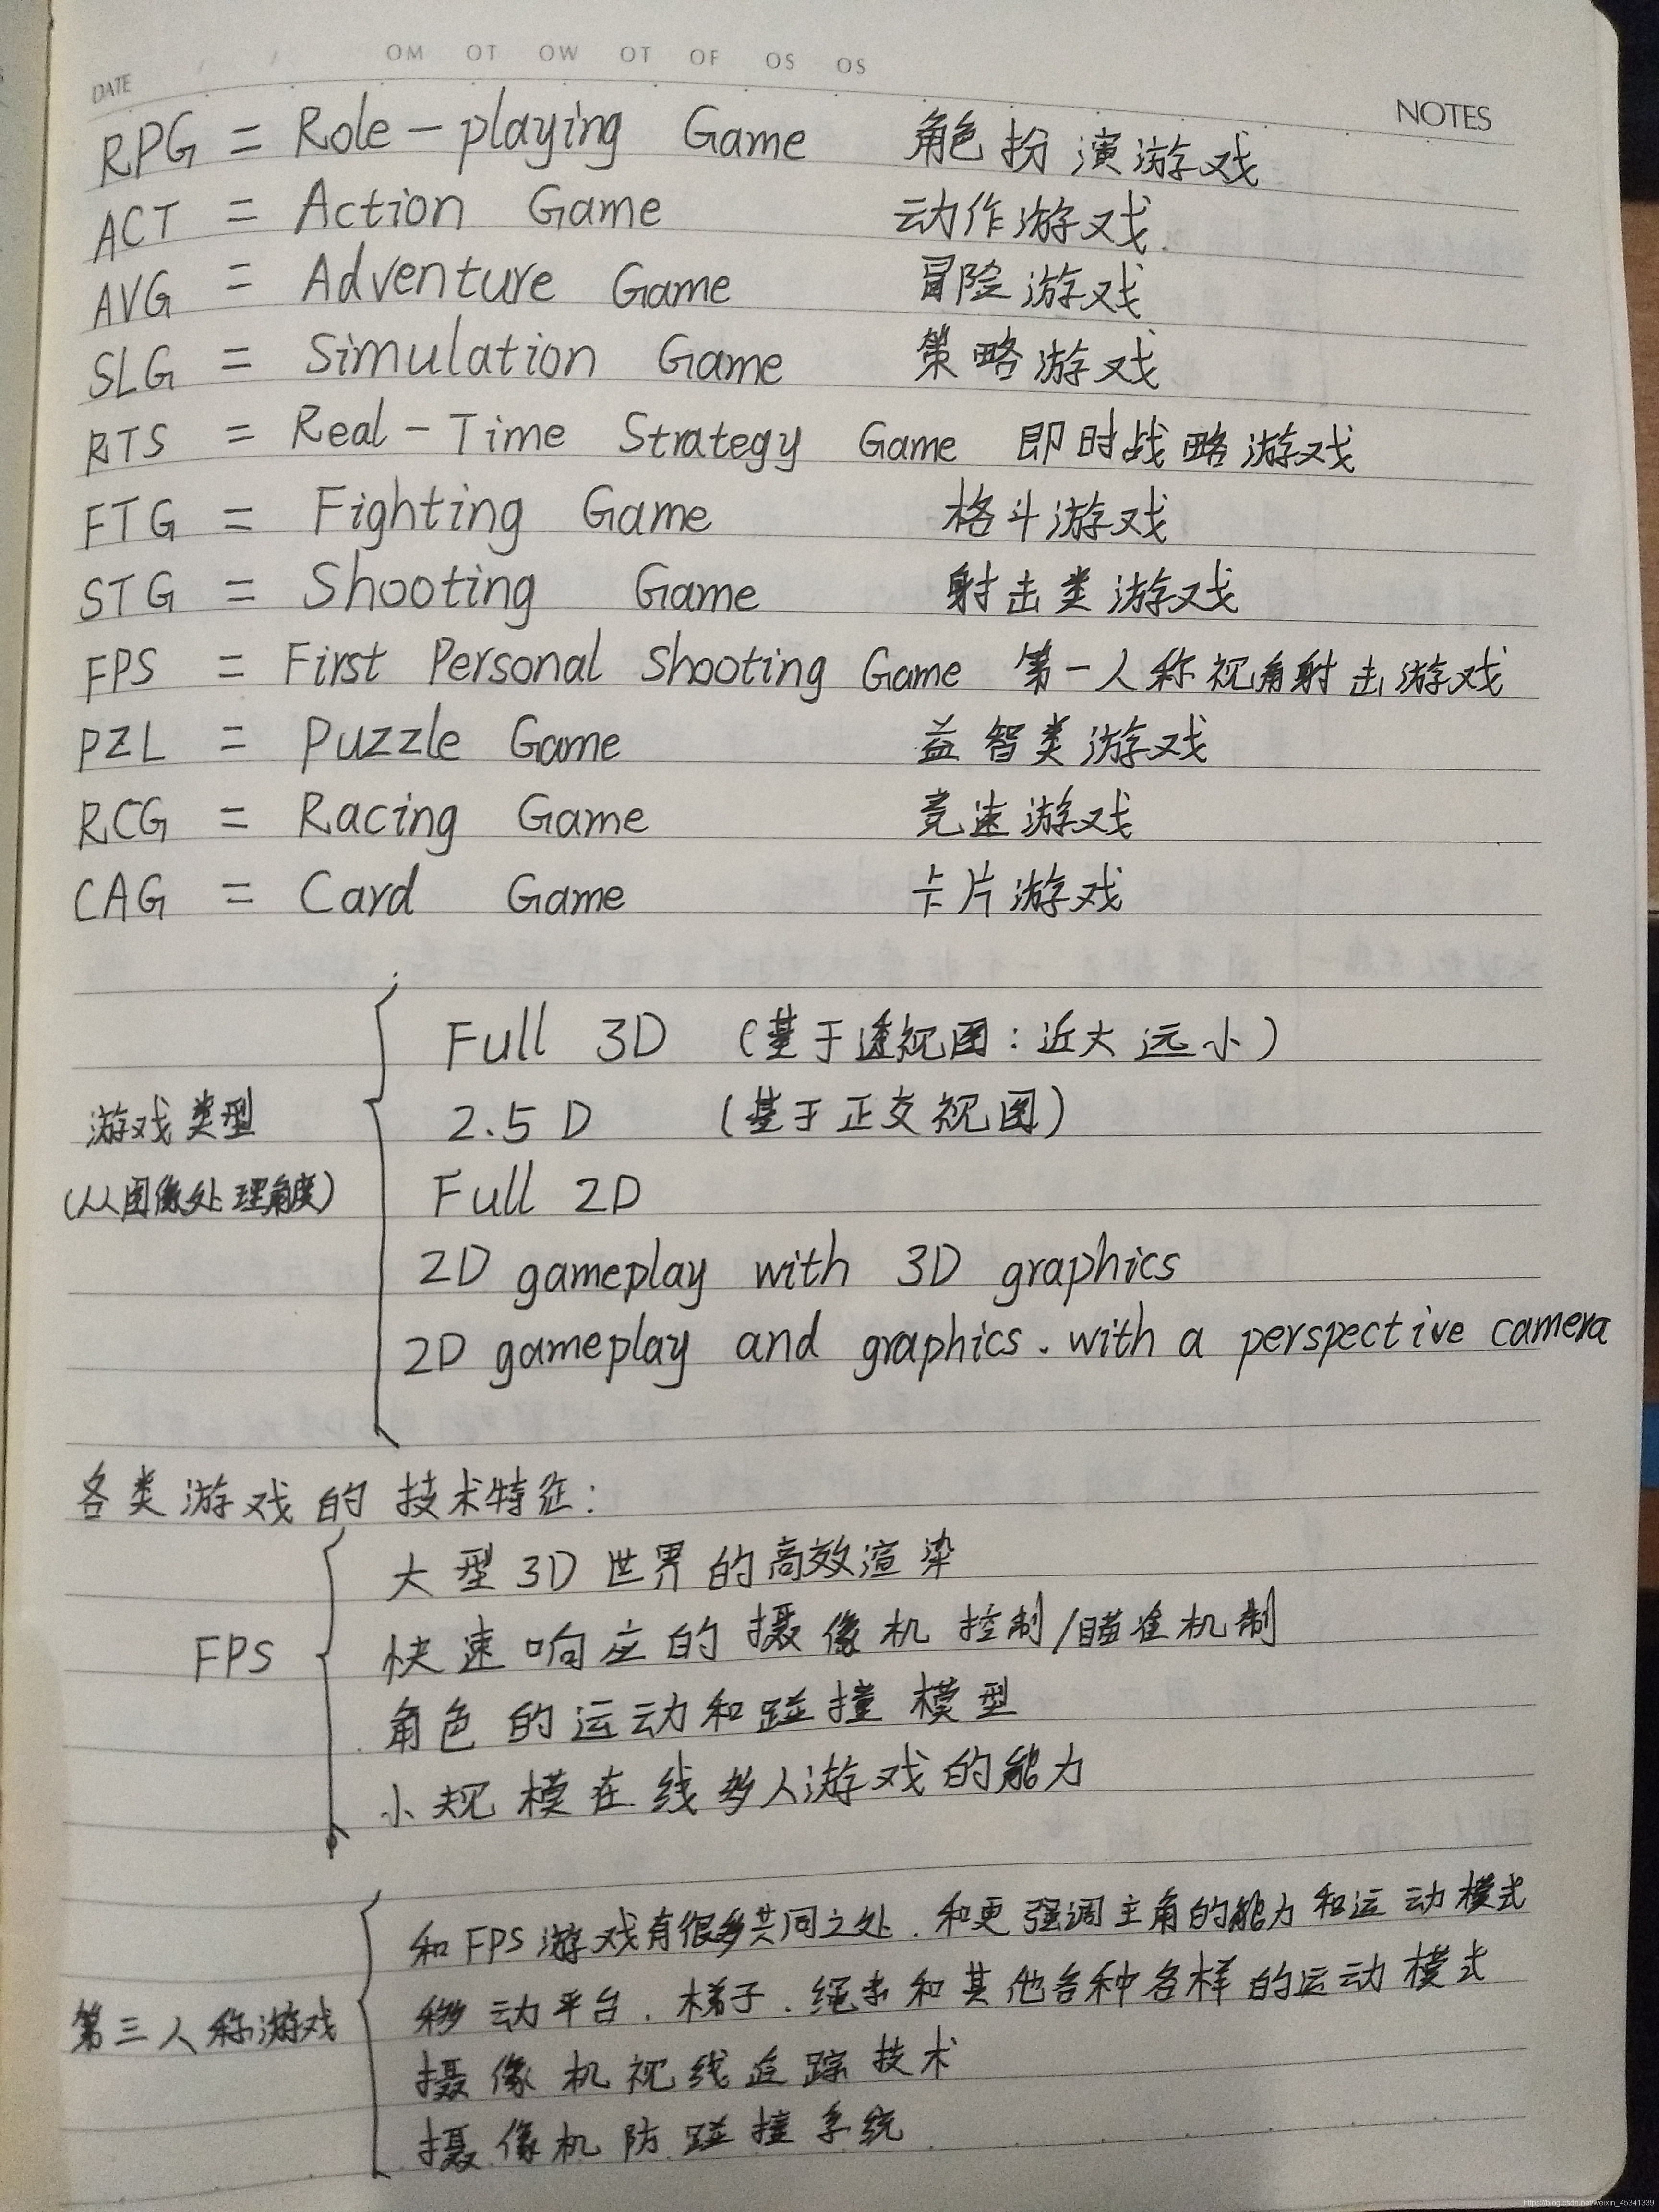 DATE OM OT OW OT OF OS OS
NOTES
RPG = Role-playing Game 角色扮演游戏
ACT = Action Game 动作游戏
AVG = Adventure Game 冒险游戏
SLG = Simulation Game 策略游戏
RTS = Real-Time Strategy Game 即时战略游戏
FTG = Fighting Game 格斗游戏
STG = Shooting Game 射击类游戏
FPS = First Personal Shooting Game 第一人称视角射击游戏
PZL = Puzzle Game 益智类游戏
RCG = Racing Game 竞速游戏
CAG = Card Game 卡片游戏
游戏类型
(从图像处理角度)
Full 3D (基于透视图:近大远小)
2.5D (基于正交视图)
Full 2D
2D gameplay with 3D graphics
2D gameplay and graphics. with a perspective camera
各类游戏的技术特征:
FPS
大型3D世界的高效渲染
快速响应的摄像机控制/瞄准机制
角色的运动和碰撞模型
小规模在线多人游戏的能力
第三人称游戏
和FPS游戏有很多共同之处.和更强调主角的能力和运动模式
移动平台.梯子.绳索和其他各种各样的运动模式
摄像机视线追踪技术
摄像机防碰撞系统
https://blog.csdn.net/weixin_45341339